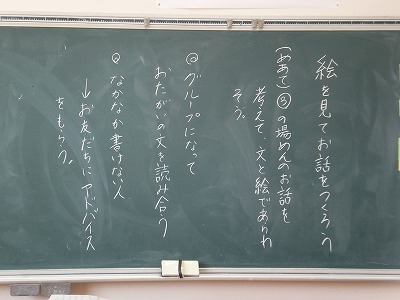 絵を見てお話をつくろう
(めあて)③の場めんのお話を
考えて、文と絵であらわ
そう。
◎グループになって
おたがいの文を読み合う
◎なかなか書けない人
→お友だちにアドバイス
をもらう。